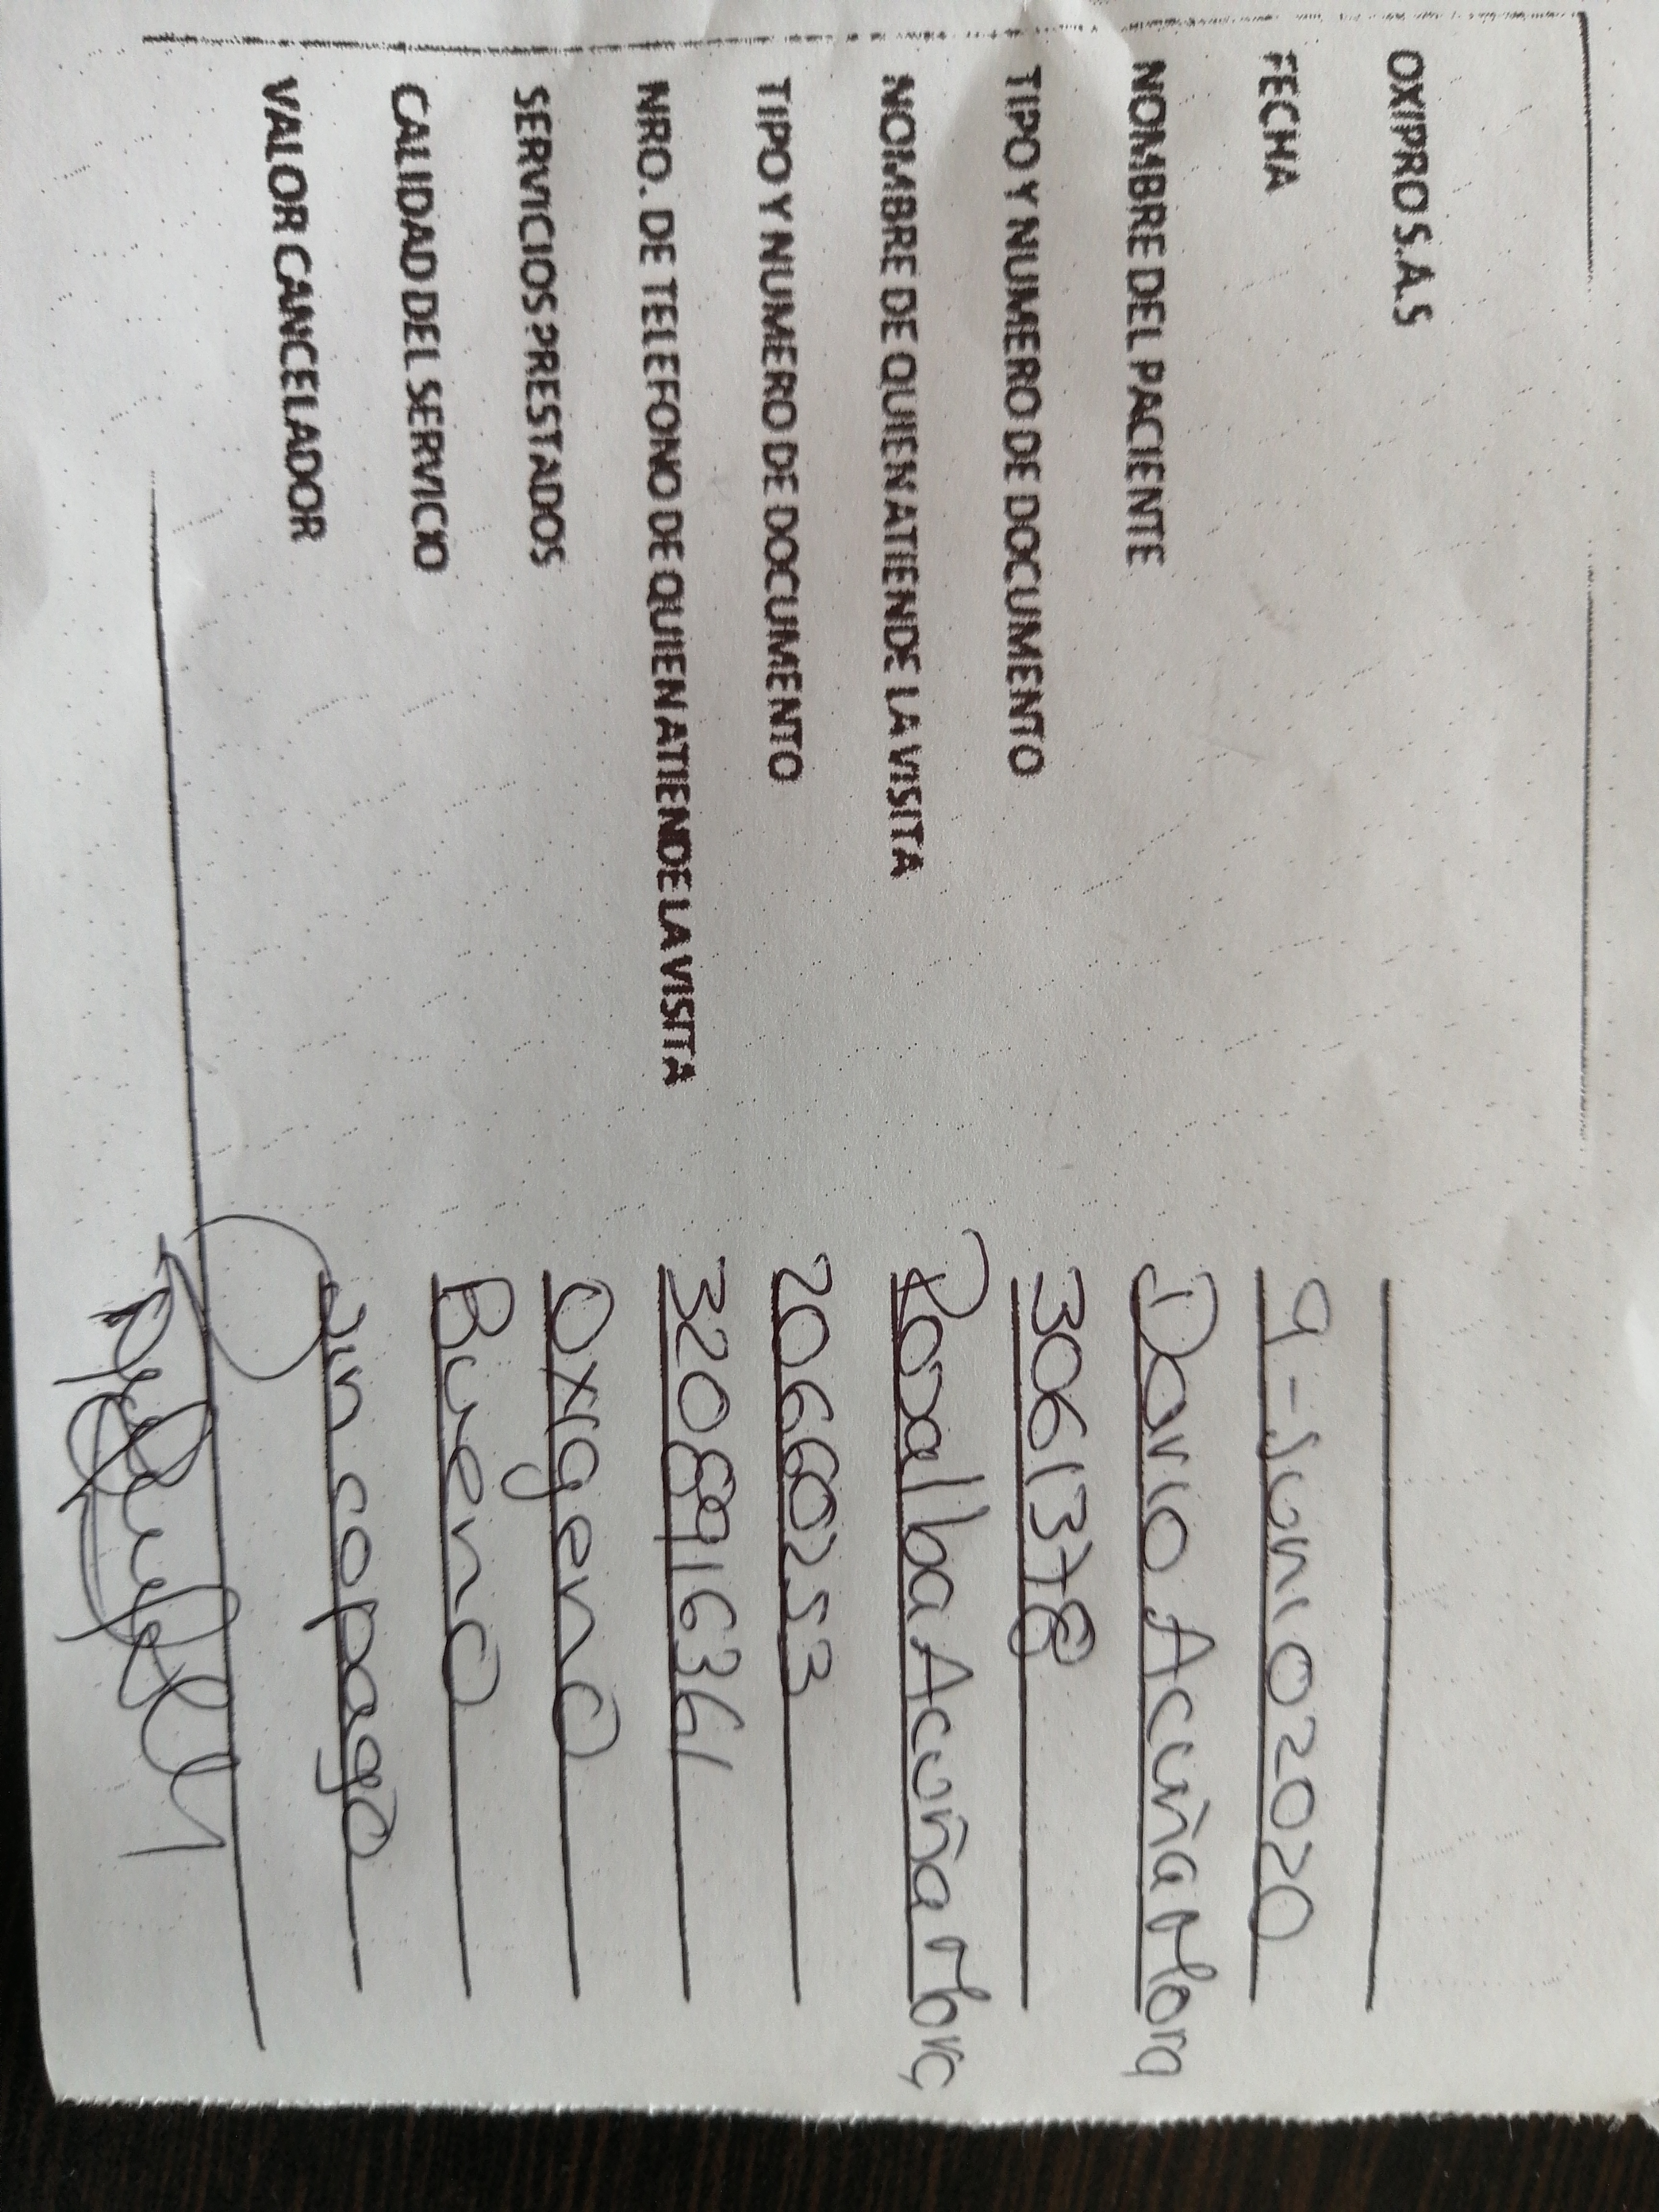 OXIPRO S.A.S
FECHA 9-Junio 2020
NOMBRE DEL PACIENTE Dario Acuña Mora
TIPO Y NUMERO DE DOCUMENTO 3061378
NOMBRE DE QUIEN ATIENDE LA VISITA Rosalba Acuña Mora
TIPO Y NUMERO DE DOCUMENTO 20660253
NRO. DE TELEFONO DE QUIEN ATIENDE LA VISITA 3208916361
SERVICIOS PRESTADOS Oxigeno
CALIDAD DEL SERVICIO Bueno
VALOR CANCELADOR Sin copago